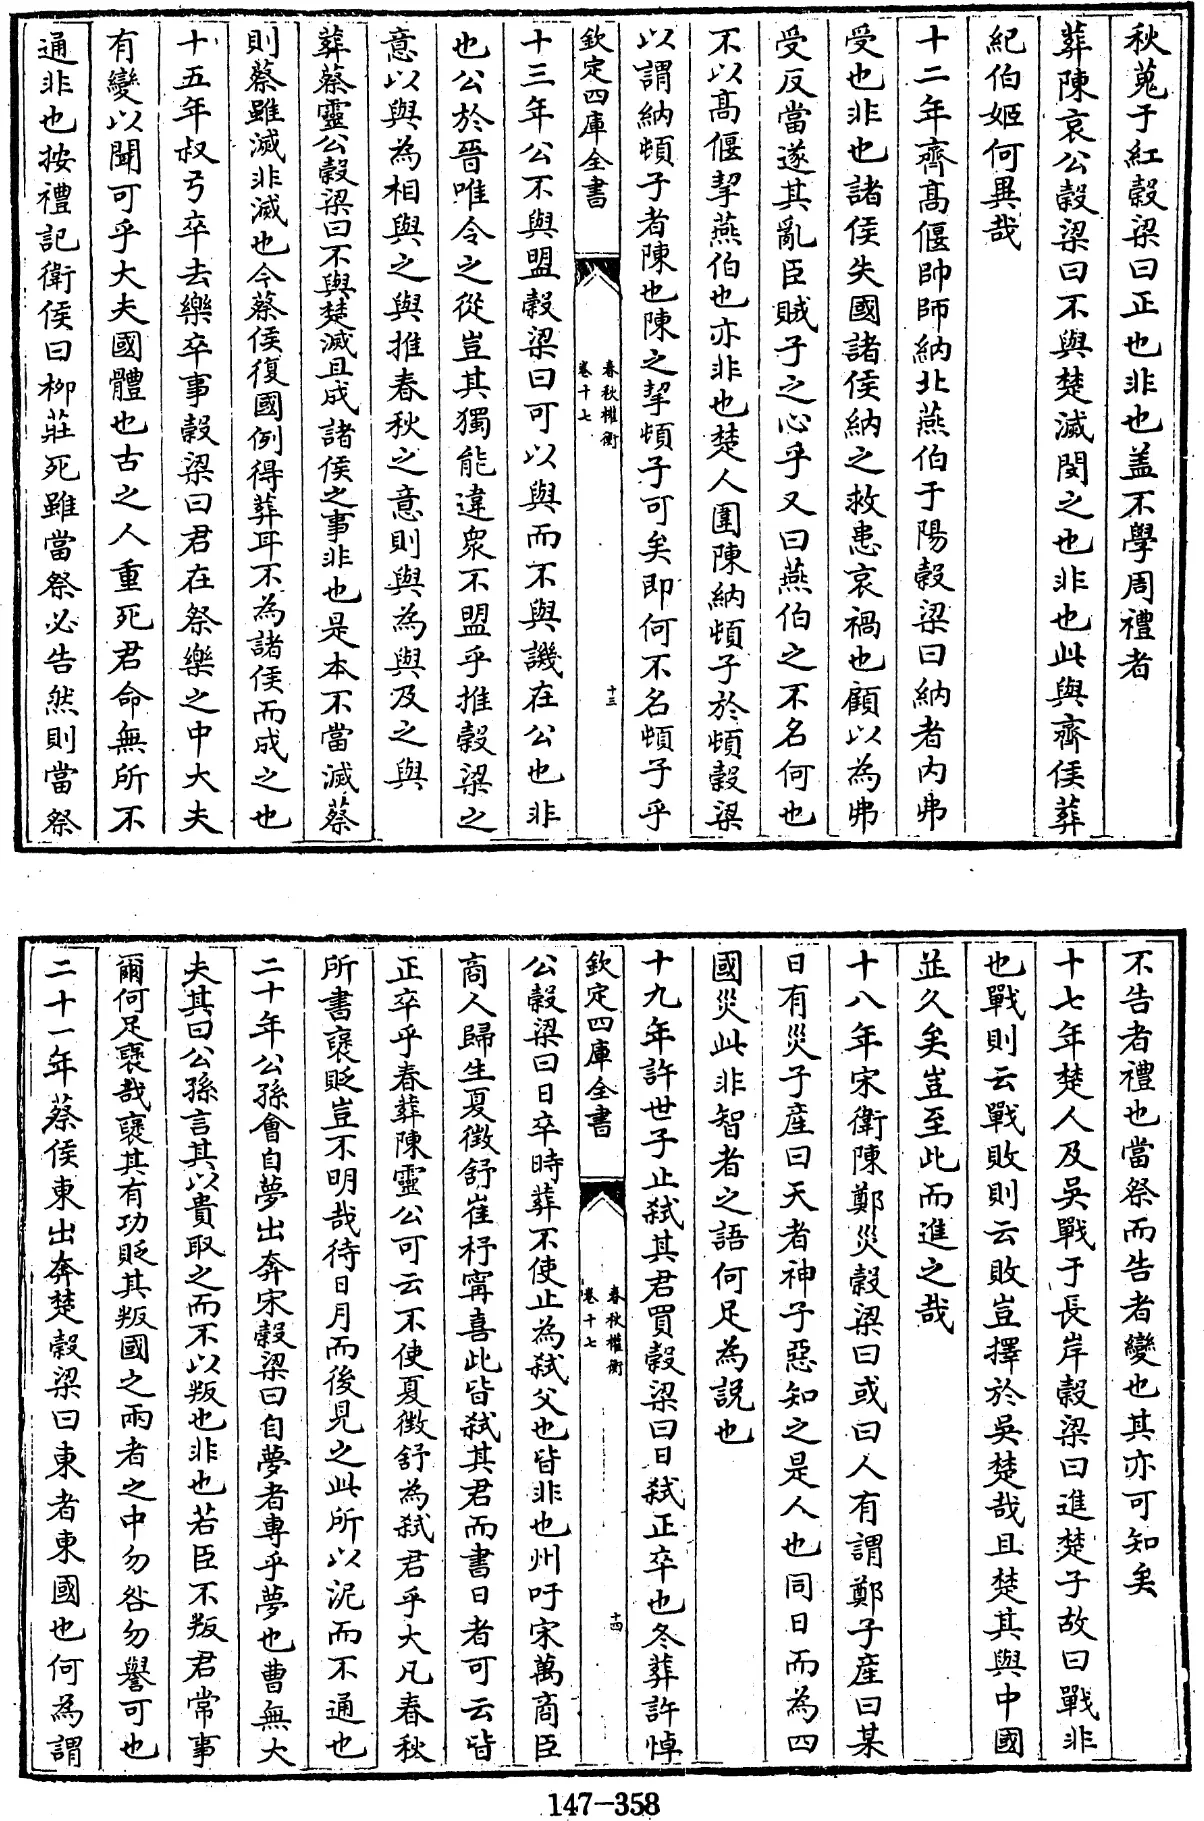 秋蒐于紅穀梁曰正也非也蓋不學周禮者
葬陳哀公穀梁曰不與楚滅閔之也非也此與齊侯葬
紀伯姬何異哉
十二年齊髙偃帥師納北燕伯于陽穀梁曰納者内弗
受也非也諸侯失國諸侯納之救患哀禍也顧以為弗
受反當遂其亂臣賊子之心乎又曰燕伯之不名何也
不以髙偃挈燕伯也亦非也楚人圍陳納頓子於頓穀梁
以謂納頓子者陳也陳之挈頓子可矣即何不名頓子乎
欽定四庫全書
春秋權衡
卷十七
十三
十三年公不與盟穀梁曰可以與而不與譏在公也非
也公於晉唯令之從豈其獨能違衆不盟乎推穀梁之
意以與為相與之與推春秋之意則與為與及之與
葬蔡靈公穀梁曰不與楚滅且成諸侯之事非也是本不當滅蔡
則蔡雖滅非滅也今蔡侯復國例得葬耳不為諸侯而成之也
十五年叔弓卒去樂卒事穀梁曰君在祭樂之中大夫
有變以聞可乎大夫國體也古之人重死君命無所不
通非也按禮記衛侯曰柳莊死雖當祭必告然則當祭
不告者禮也當祭而告者變也其亦可知矣
十七年楚人及吳戰于長岸穀梁曰進楚子故曰戰非
也戰則云戰敗則云敗豈擇於吳楚哉且楚其與中國
並久矣豈至此而進之哉
十八年宋衛陳鄭災穀梁曰或曰人有謂鄭子産曰某
日有災子産曰天者神子惡知之是人也同日而為四
國災此非智者之語何足為説也
十九年許世子止弑其君買穀梁曰日弑正卒也冬葬許悼
欽定四庫全書
春秋權衡
卷十七
十四
公穀梁曰日卒時葬不使止為弑父也皆非也州吁宋萬商臣
商人歸生夏徵舒崔杼甯喜此皆弑其君而書日者可云皆
正卒乎春葬陳靈公可云不使夏徵舒為弑君乎大凡春秋
所書襃貶豈不明哉待日月而後見之此所以泥而不通也
二十年公孫會自夢出奔宋穀梁曰自夢者專乎夢也曹無大
夫其曰公孫言其以貴取之而不以叛也非也若臣不叛君常事
爾何足襃哉襃其有功貶其叛國之兩者之中勿咎勿譽可也
二十一年蔡侯東出奔楚穀梁曰東者東國也何為謂
147-358